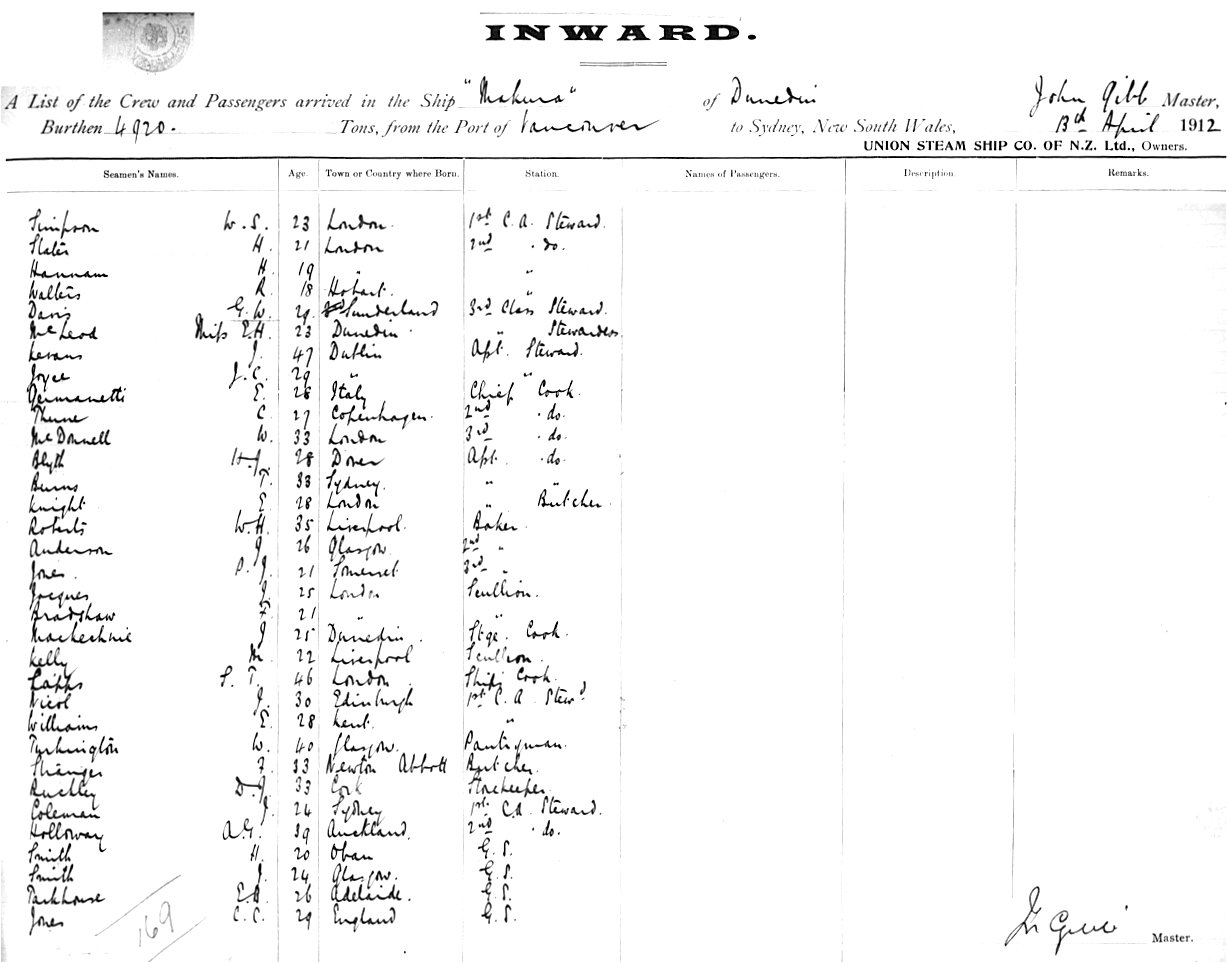 INWARD.
A List of the Crew and Passengers arrived in the Ship "Makura" of Dunedin John Gibb Master,
Burthen 4920. Tons, from the Port of Vancouver to Sydney, New South Wales, 13th April 1912
UNION STEAM SHIP CO. OF N.Z. Ltd., Owners.
Seamen's Names. Age. Town or Country where Born. Station. Names of Passengers. Description. Remarks.
Simpson W. S. 23 London. 1st C. A. Steward.
Slater H. 21 London 2nd . do.
Hannam H. 19 " "
Walters R. 18 Hobart. "
Davis G. W. 29 Sunderland 3rd Class Steward.
McLeod Miss E.H. 23 Dunedin. " Stewardess.
Levans J. 47 Dublin Aft. Steward.
Joyce J. C. 29 " "
Germanetti E. 28 Italy Chief Cook.
Thune C. 27 Copenhagen. 2nd . do.
McDonnell W. 33 London 3rd . do.
Blyth H.J. 28 Dover Aft. . do.
Burns T. 33 Sydney. " "
Knight E. 28 London " Butcher.
Roberts W.H. 35 Liverpool. Baker.
Anderson J. 26 Glasgow. 2nd "
Jones. P. J. 21 Somerset. 3rd "
Jacques J. 25 London Scullion.
Bradshaw F. 21 " "
Mackechnie J 25 Dunedin. Stge. Cook.
Kelly M. 22 Liverpool Scullion.
Capps S. T. 46 London Ships Cook.
Nicol J. 30 Edinburgh 1st C. A. Stewd
Williams E. 28 Kent. "
Turkington W. 40 Glasgow. Pantryman.
Stranger F. 33 Newton Abbott Butcher.
Buckley D.J. 33 Cork Storekeeper.
Coleman J. 24 Sydney 1st. C.A. Steward.
Holloway A.G. 39 Auckland. 2nd . do.
Smith H. 20 Oban G. S.
Smith J. 24 Glasgow. G. S.
Parkhouse E.A. 26 Adelaide. G. S.
Jones C. C. 29 England G. S.
169
Master.